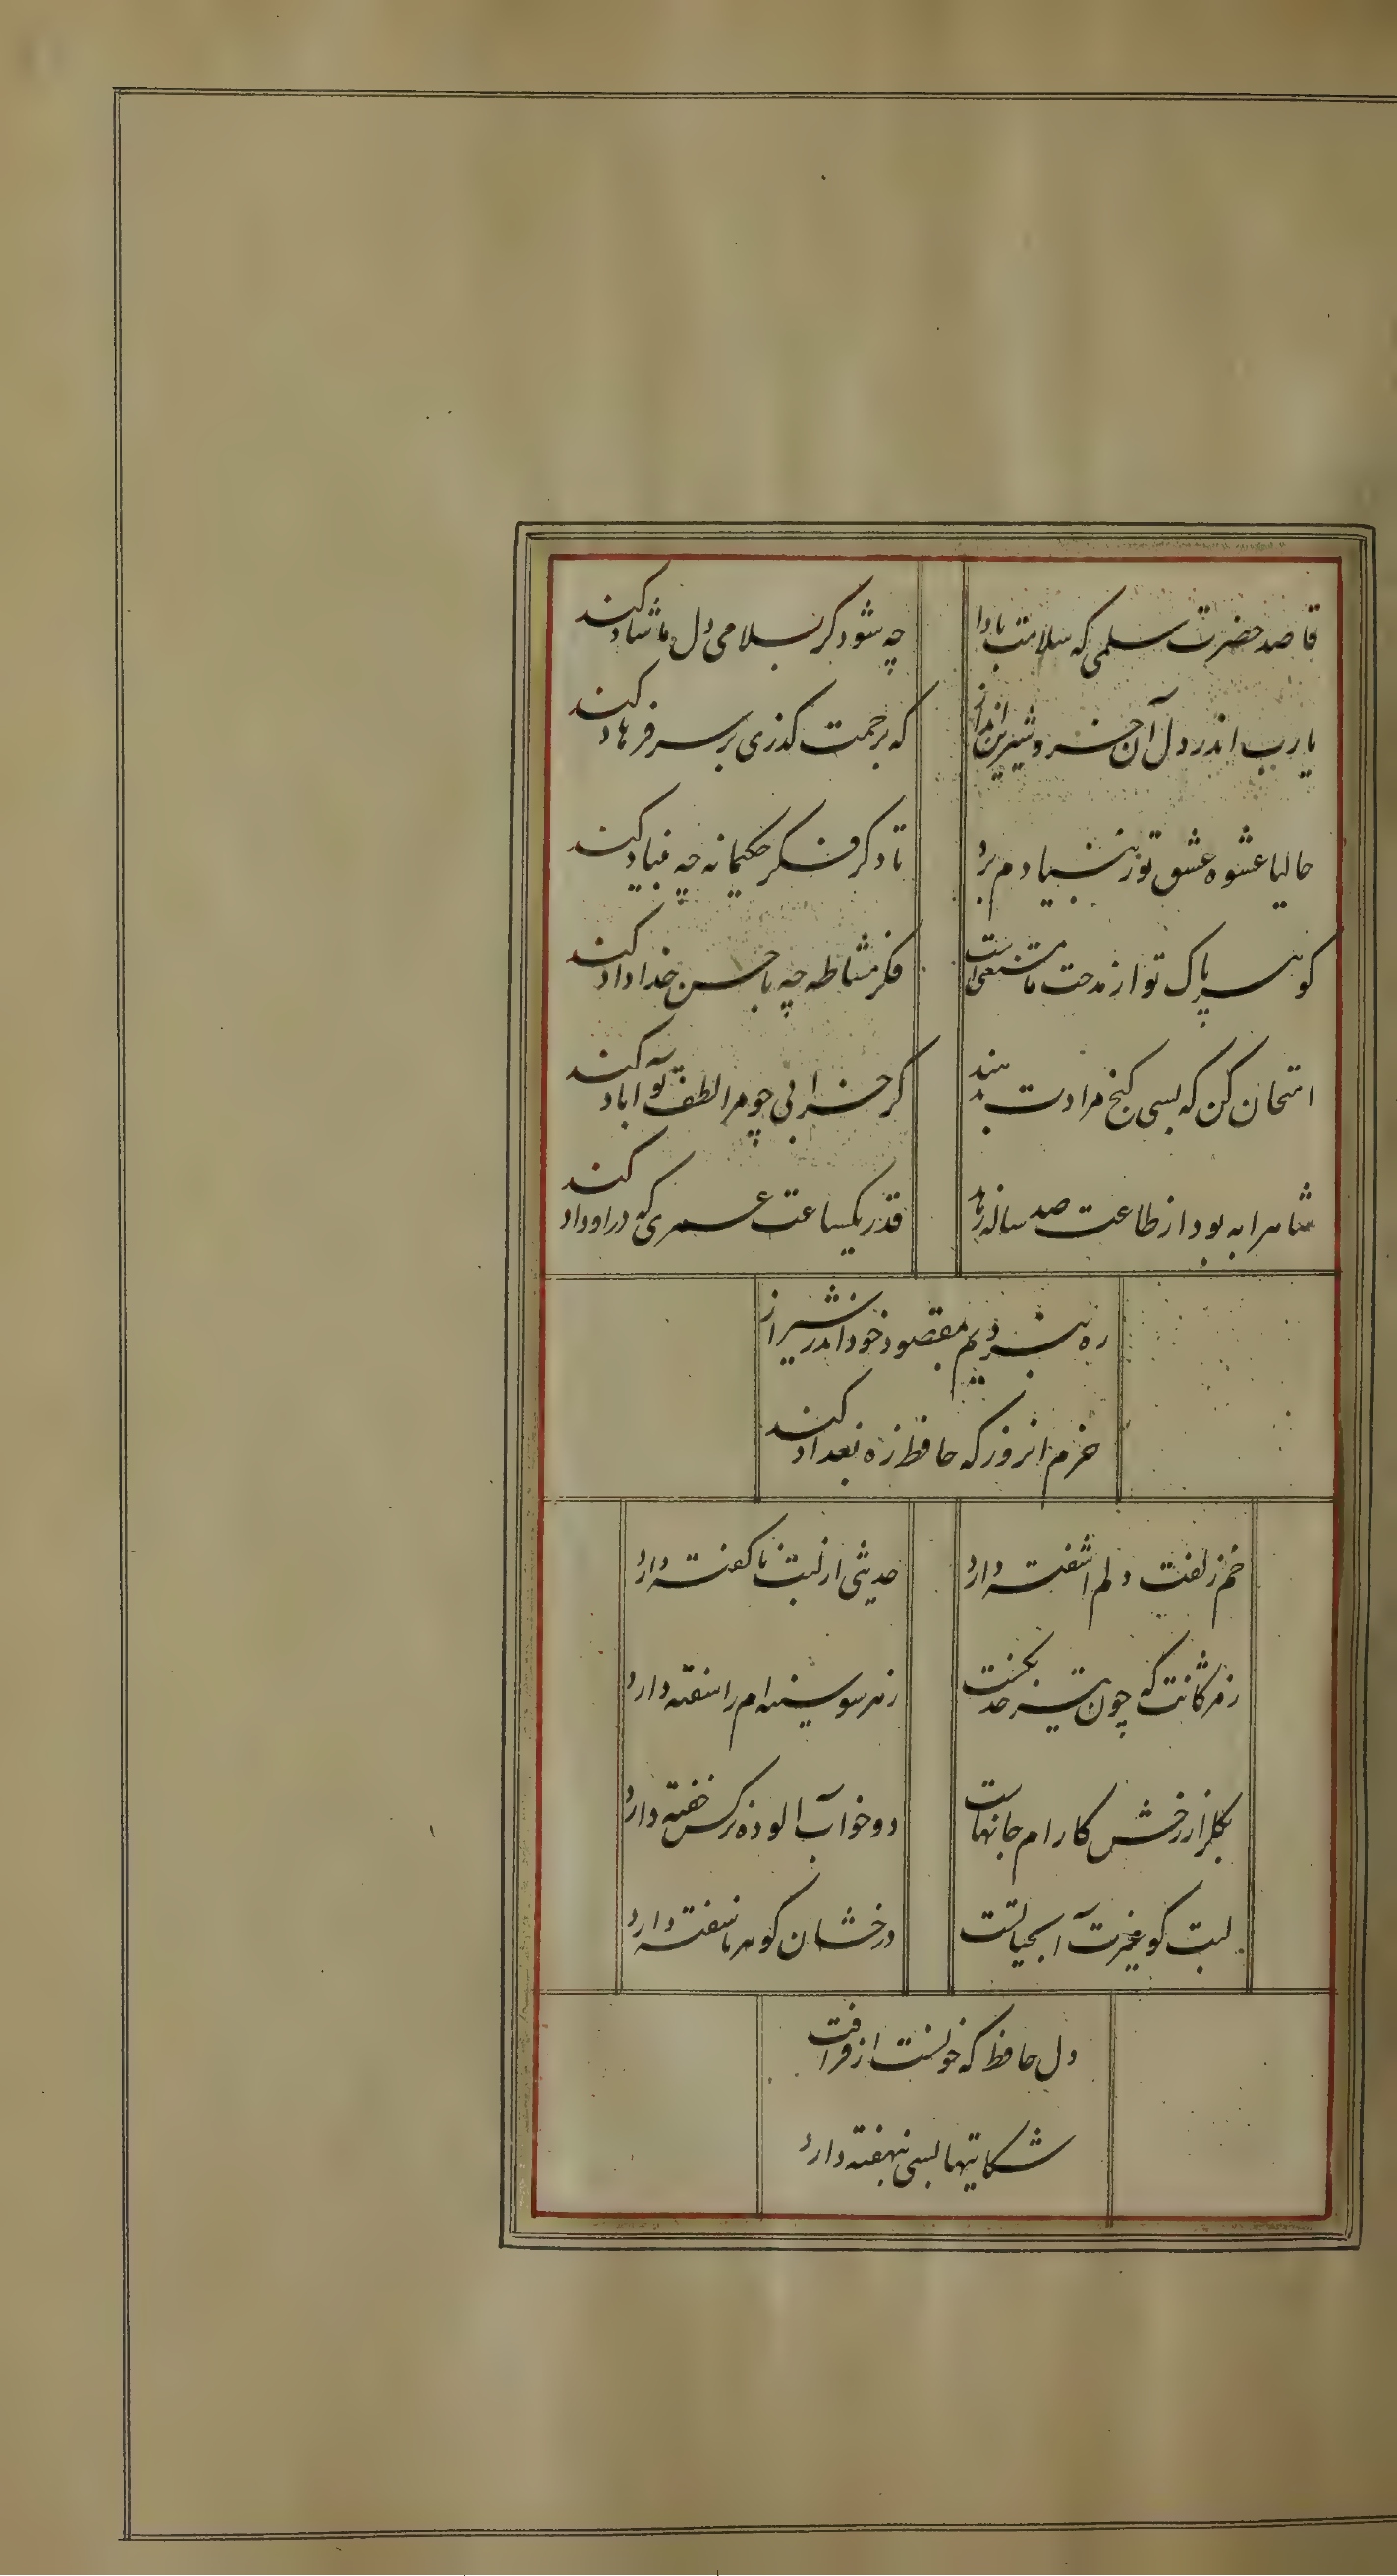 قاصد حضرت سلمی که سلامت بادا
چه شود کر بسلامی دل ما شاد کند
یارب اندر دل آن خسرو شیرین انداز
که برحمت کذری بر سر فرهاد کند
حالیا عشوه عشق تو ز بنیادم برد
تا دکر فکر حکیمانه چه بنیاد کند
کوهر پاک تو از مدحت ما مستغنی است
فکر مشاطه چه با حسن خداداد کند
امتحان کن که بسی کنج مرادت بدهند
کر خرابی چو مرا لطف تو آباد کند
شاه را به بود از طاعت صد ساله زهد
قدر یکساعت عمری که در او داد کند
ره نبردیم بمقصود خود اندر شیراز
خرم انروز که حافظ ره بغداد کند
خم زلفت دلم اشفته دارد
حدیثی از لبت ناکفته دارد
ز مژکانت که چون تیر خدنکست
ز هر سو سینه ام را سفته دارد
بکلزار رخش کارام جانهاست
دو خواب آلوده نرکس خفته دارد
لبت کو غیرت آب حیاتست
درخشان کوهر ناسفته دارد
دل حافظ که خونست از فراقت
شکایتها بسی نهفته دارد